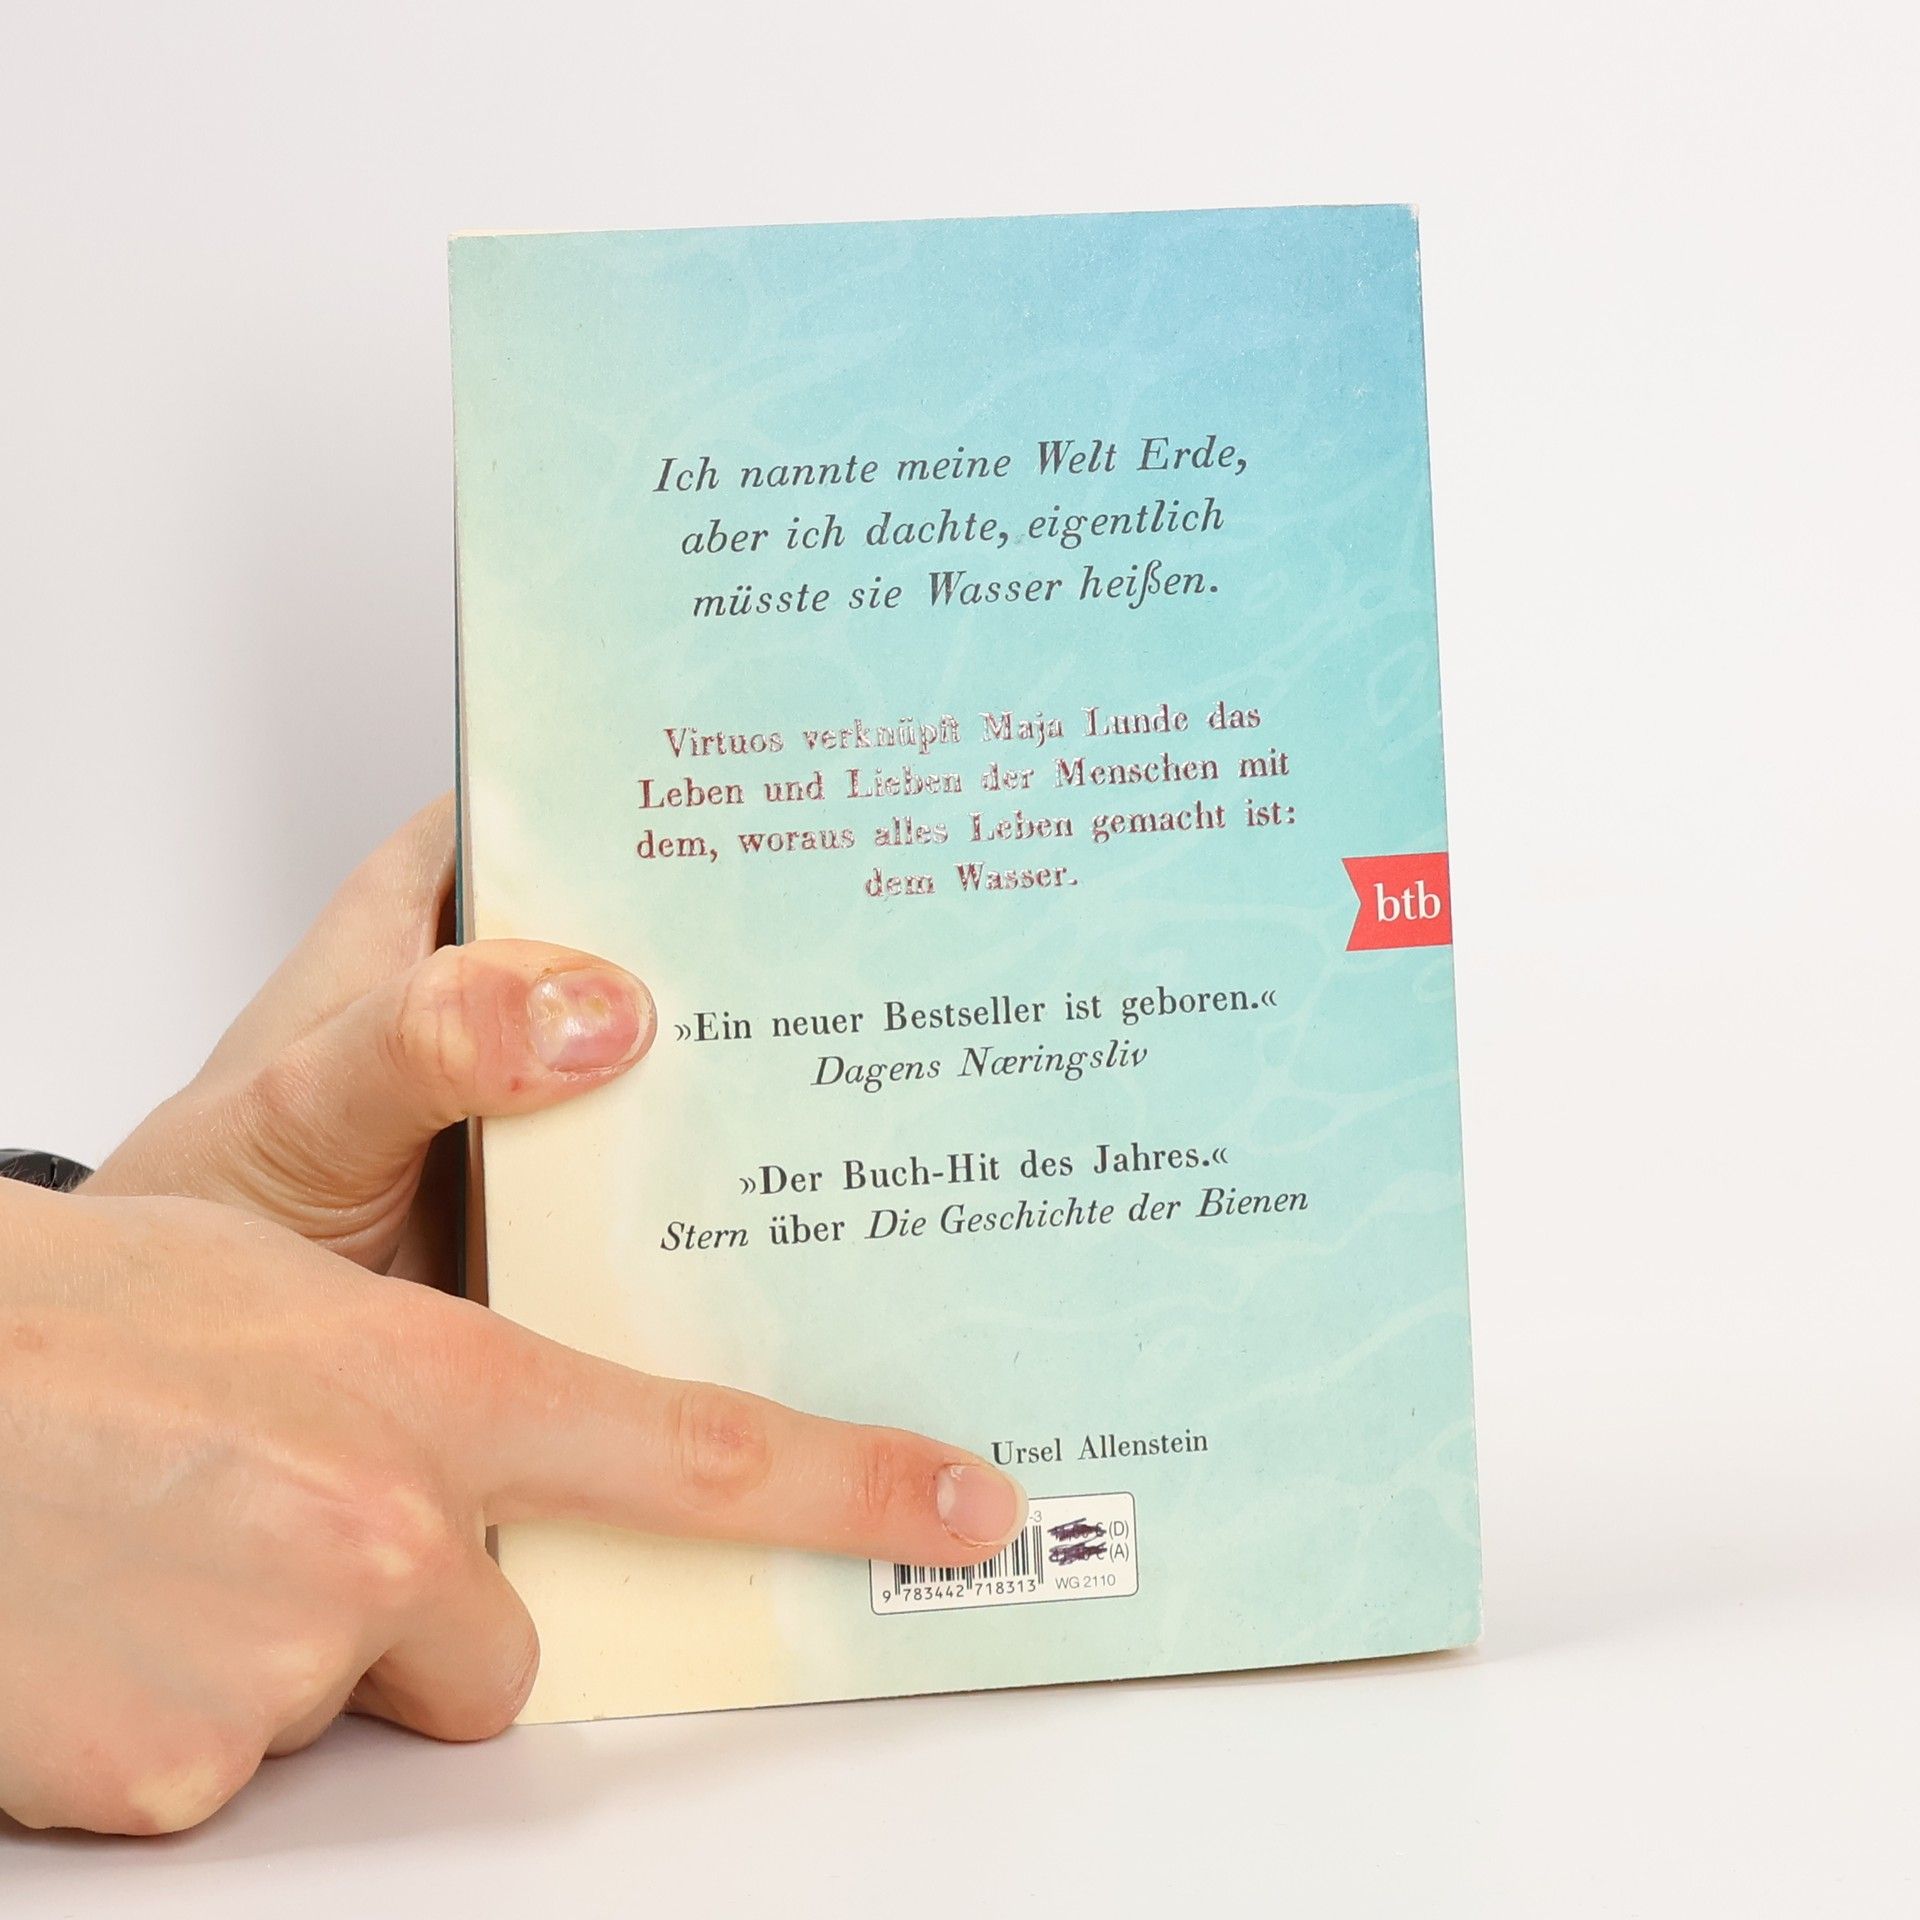 Ich nannte meine Welt Erde,
aber ich dachte, eigentlich
müsste sie Wasser heißen.
Virtuos verknüpft Maja Lunde das
Leben und Lieben der Menschen mit
dem, woraus alles Leben gemacht ist:
dem Wasser.
btb
»Ein neuer Bestseller ist geboren.«
Dagens Næringsliv
»Der Buch-Hit des Jahres.«
Stern über Die Geschichte der Bienen
Ursel Allenstein
-3
(D)
(A)
9 783442 718313
WG 2110